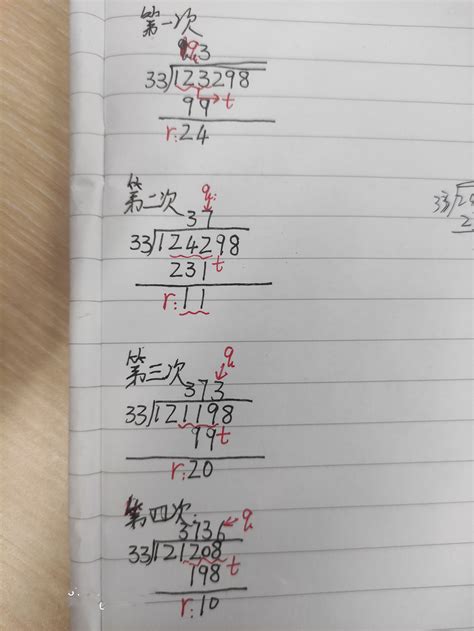 第一次
q 3
33√123298
99→t
r:24
第二次
q
37
33√124298
231 t
r:11
第三次
q
373
33√121198
99 t
r:20
第四次
3736←q
33√121208
198 t
r:10